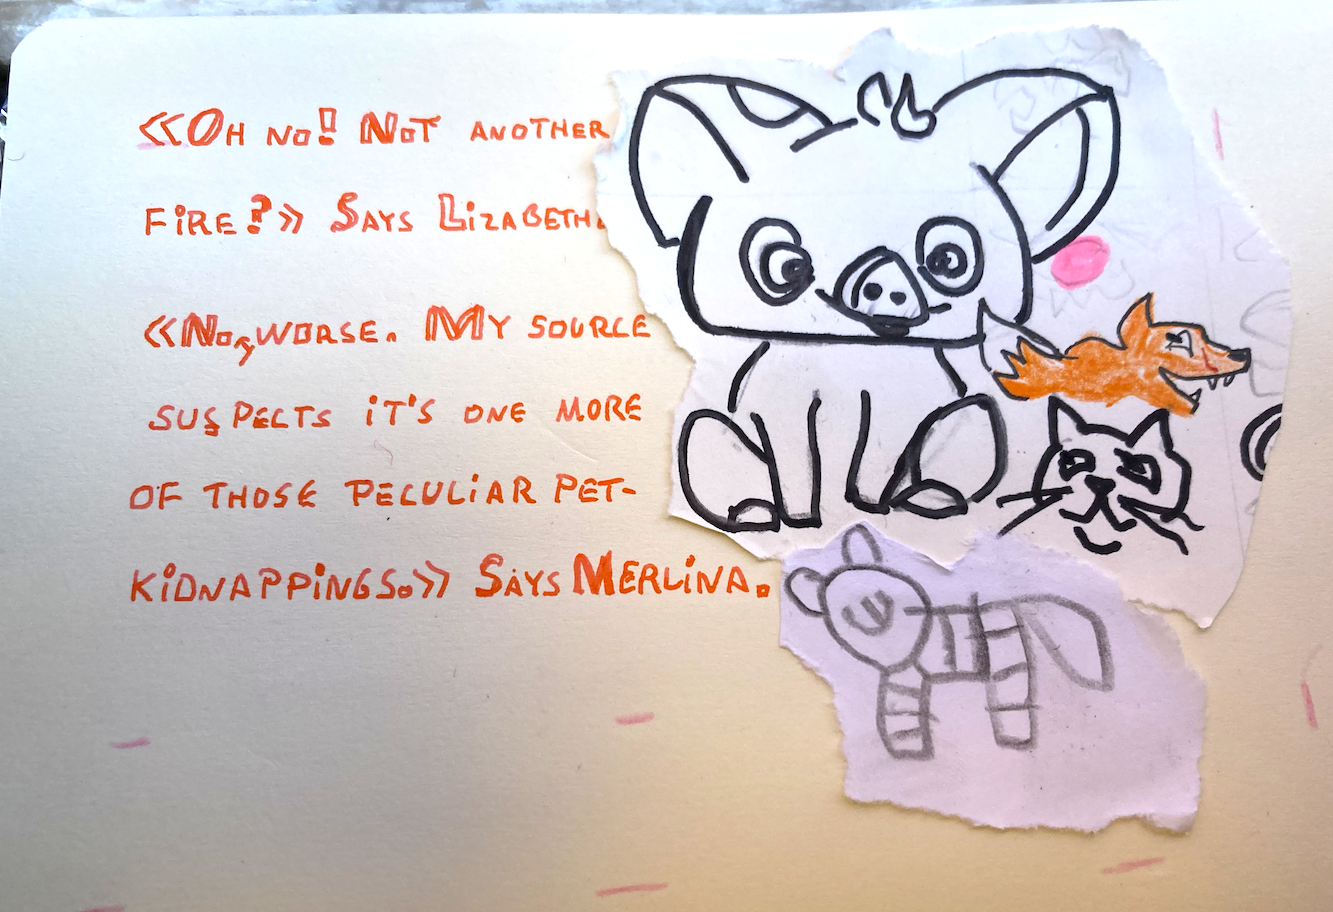 «Oh no! Not another
fire?» Says Lizabeth.
«No, worse. My source
suspects it's one more
of those peculiar pet-
kidnappings.» Says Merlina.